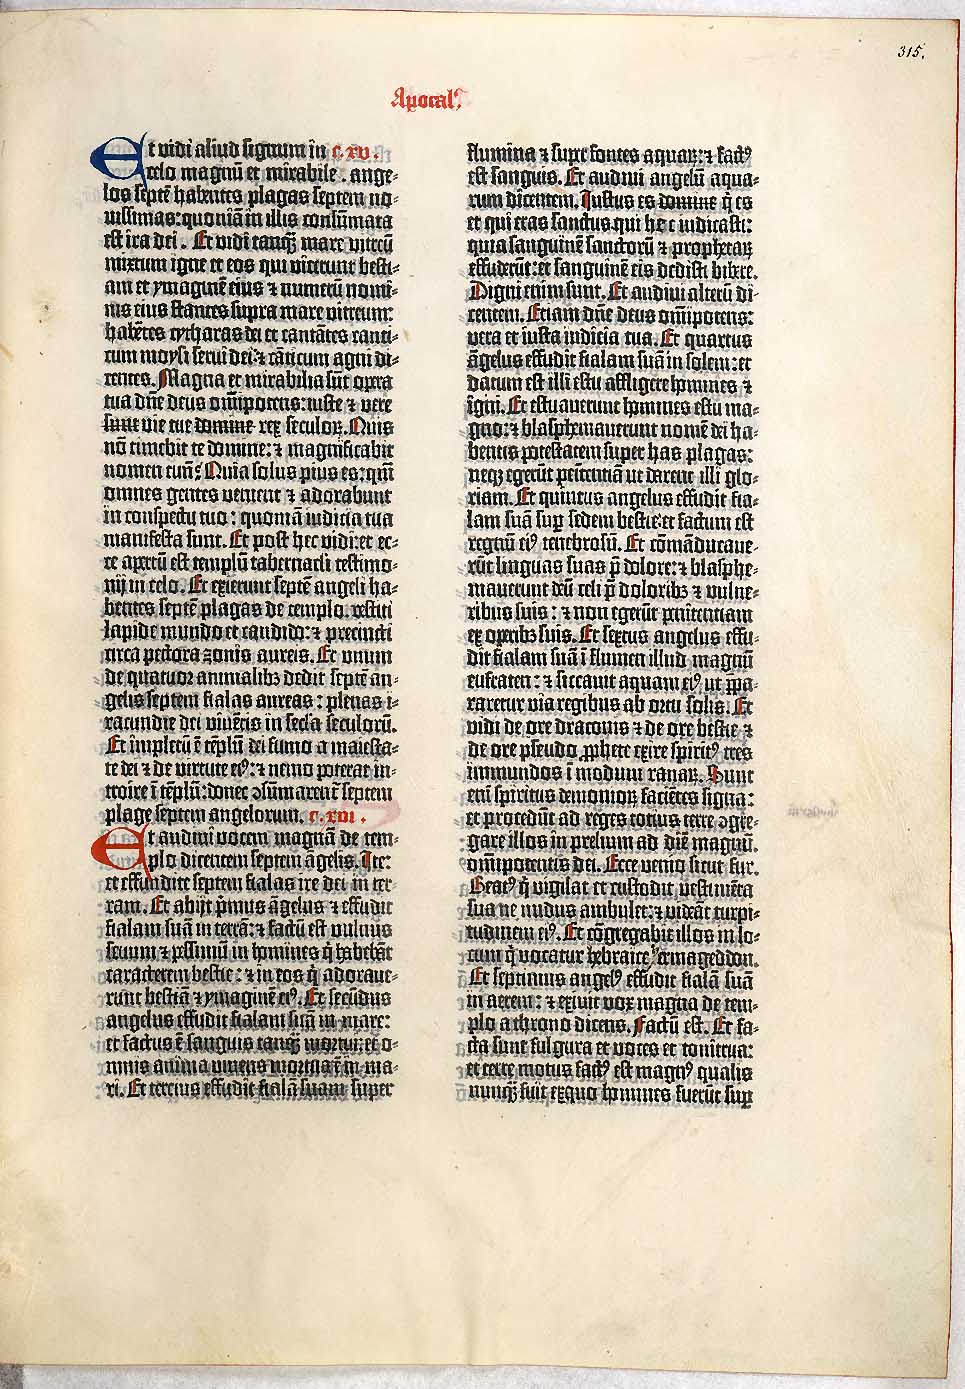 315.
Apocal'
Et vidi aliud signum in c. xv.
celo magnū et mirabile . ange-
los septē habentes plagas septem no-
vissimas: quoniā in illis consūmata
est ira dei . Et vidi tanqȝ mare vitreū
mixtum igne et eos qui vicerunt besti-
am et ymaginē eius ⁊ numerū nomi-
nis eius stantes supra mare vitreum:
habētes cytharas dei et cantātes canti-
cum moysi servi dei: ⁊ cāticum agni di-
centes. Magna et mirabilia sūt opera
tua dñe deus omīpotens: iuste ⁊ vere
sunt vie tue domine rex seculoꝝ. Quis
nō timebit te domine: ⁊ magnificabit
nomen tuū? Quia solus pius es: qm̄
omnes gentes venient ⁊ adorabunt
in conspectu tuo: quoniā iudicia tua
manifesta sunt. Et post hec vidi: et ec-
ce apertū est templū tabernacli testimo-
nij in celo. Et exierunt septē angeli ha-
bentes septē plagas de templo. vestiti
lapide mundo et candido: ⁊ precincti
circa pectora zonis aureis. Et unum
de quatuor animalibȝ dedit septē an-
gelis septem fialas aureas: plenas i-
racundie dei viventis in secla seculorū.
Et impletū ē tēplū dei fumo a maiesta-
te dei ⁊ de virtute eiꝰ: ⁊ nemo poterat in-
troire ī tēplū: donec ꝯsumarent̄ septem
plage septem angelorum. c. xvi.
Et audivi vocem magnā de tem-
plo dicentem septem āgelis. Ite:
et effundite septem fialas ire dei in ter-
ram. Et abijt p̄mus āgelus ⁊ effudit
fialam suā in terrā: ⁊ factū est vulnus
sevum ⁊ pessimū in homines q̄ habebāt
caracterem bestie: ⁊ in eos q̄ adorave-
runt bestiā ⁊ ymaginē eiꝰ. Et secūdus
angelus effudit fialam suā in mare:
et factus ē sanguis tanqȝ mortui: et o-
mnis anima vivens mortua ē in ma-
ri. Et tercius effudit fialā suam super
flumina ⁊ supꝛ fontes aquaꝝ: ⁊ factꝰ
est sanguis. Et audivi angelū aqua-
rum dicentem. Justus es domine q̄ es
et qui eras sanctus. qui hec iudicasti:
quia sanguinē sanctorū ⁊ prophetaꝝ
effuderūt: et sanguinē eis dedisti bibere.
Digni enim sunt. Et audivi alterū di-
centem. Etiam dñe deus omīpotens:
vera et iusta iudicia tua. Et quartus
āgelus effudit fialam suā in solem: et
datum est illi estu affligere homines ⁊
igni. Et estuaverunt homines estu ma-
gno: ⁊ blasphemaverunt nomē dei ha-
bentis potestatem super has plagas:
neqȝ egerūt penitentiā ut darent illi glo-
riam. Et quintus angelus effudit fia-
lam suā sup̱ sedem bestie: et factum est
regnū eiꝰ tenebrosū. Et cōmāducave-
rūt linguas suas p̄ dolore: ⁊ blasphe-
maverunt deū celi p̄ doloribȝ ⁊ vulne-
ribus suis: ⁊ non egerūt penitentiam
ex operibȝ suis. Et sextus angelus effu-
dit fialam suā ī flumen illud magnū
eufraten: ⁊ siccavit aquam eiꝰ ut p̄pa-
raretur via regibus ab ortu solis. Et
vidi de ore draconis ⁊ de ore bestie ⁊
de ore pseudo prophete exire spiritꝰ tres
immundos ī modum ranaꝝ. Sunt
enī spiritus demonioꝝ faciētes signa:
et procedūt ad reges totius terre ꝯgre-
gare illos in prelium ad diē magnū.
omīpotentis dei. Ecce venio sicut fur.
Beatꝰ q̄ vigilat et custodit vestimēta
sua ne nudus ambulet: ⁊ videāt turpi-
tudinem eiꝰ. Et cōgregabit illos in lo-
cum q̄ vocatur hebraice hermageddon.
Et septimus angelꝰ effudit fialā suā
in aerem: ⁊ exivit vox magna de tem-
plo a throno dicens. Factū est. Et fa-
cta sunt fulgura et voces et tonitrua:
et terre motus factꝰ est magnꝰ qualis
nunqȝ fuit ex quo homines fuerūt sup̱